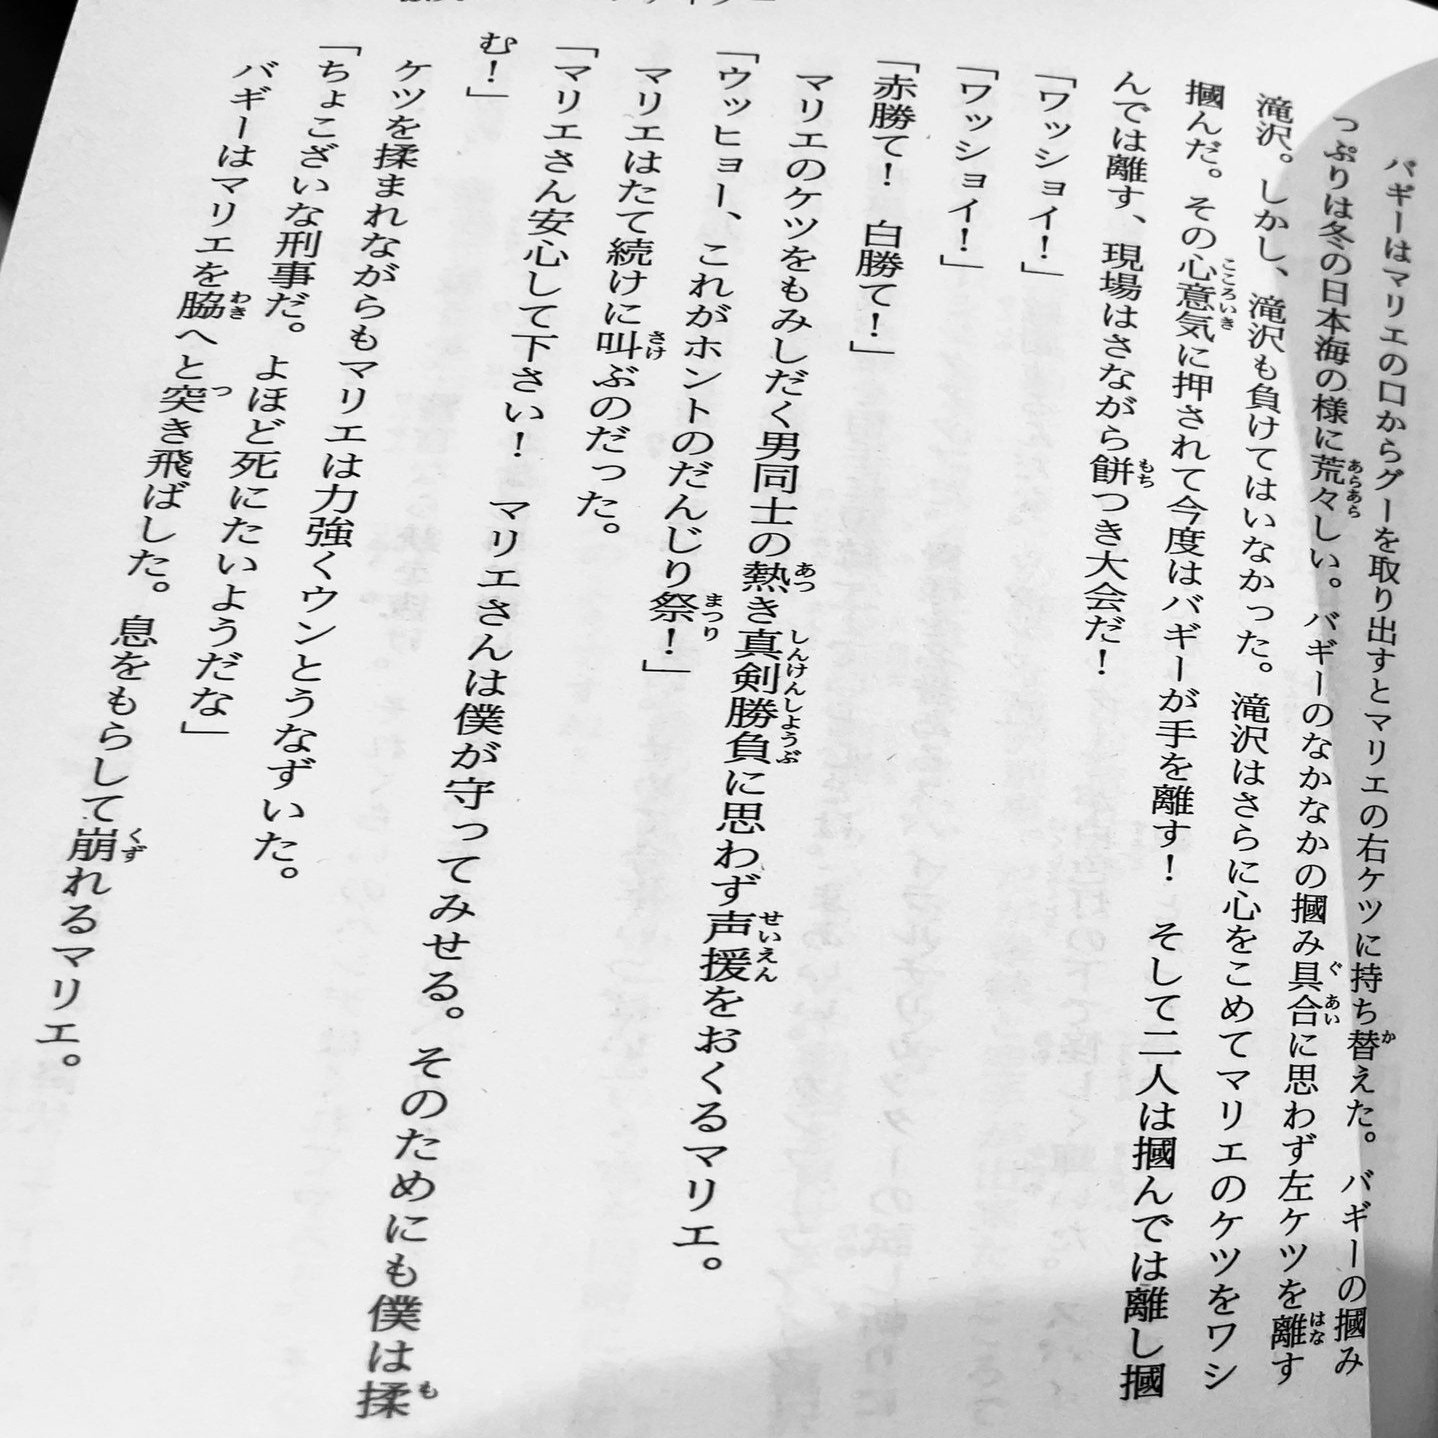 バギーはマリエの口からグーを取り出すとマリエの右ケツに持ち替えた。バギーの摑み
っぷりは冬の日本海の様に荒々しい。バギーのなかなかの摑み具合に思わず左ケツを離す
滝沢。しかし、滝沢も負けてはいなかった。滝沢はさらに心をこめてマリエのケツをワシ
摑んだ。その心意気に押されて今度はバギーが手を離す！　そして二人は摑んでは離し摑
んでは離す、現場はさながら餅つき大会だ！
「ワッショイ！」
「ワッショイ！」
「赤勝て！　白勝て！」
マリエのケツをもみしだく男同士の熱き真剣勝負に思わず声援をおくるマリエ。
「ウッヒョー、これがホントのだんじり祭！」
マリエはたて続けに叫ぶのだった。
「マリエさん安心して下さい！　マリエさんは僕が守ってみせる。そのためにも僕は揉
む！」
ケツを揉まれながらもマリエは力強くウンとうなずいた。
「ちょこざいな刑事だ。よほど死にたいようだな」
バギーはマリエを脇へと突き飛ばした。息をもらして崩れるマリエ。